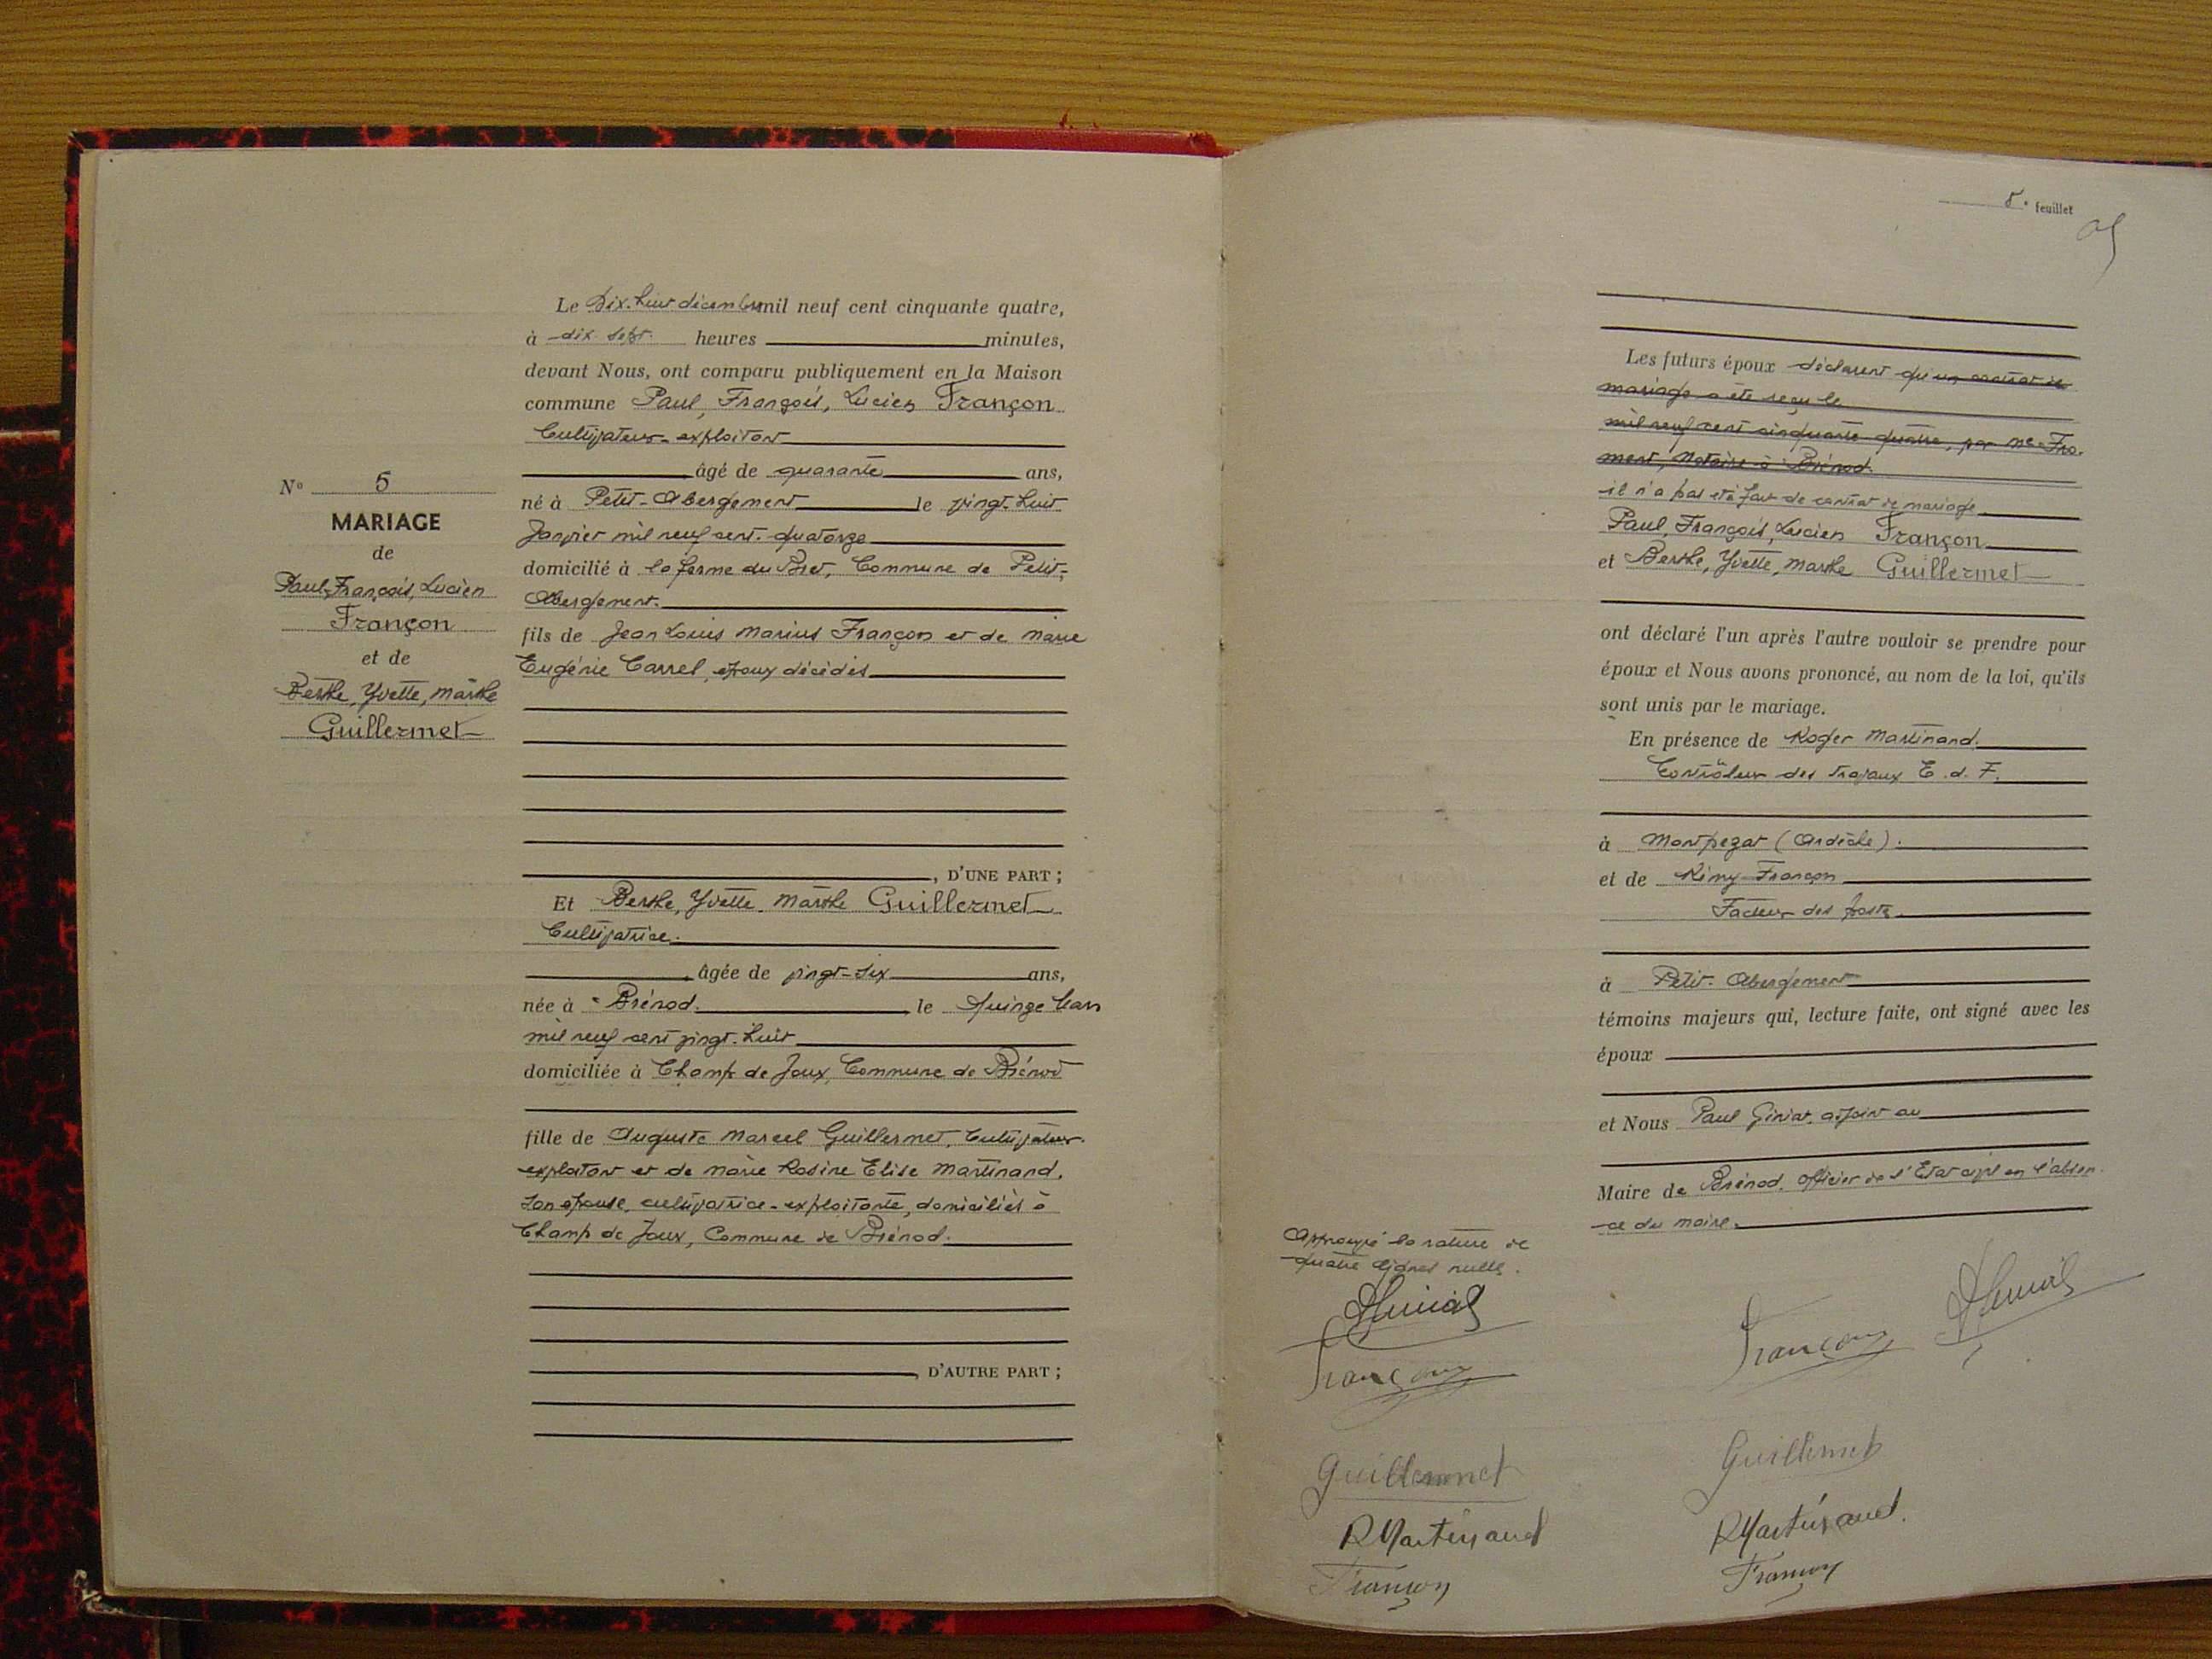 Le Dix-huit décembre mil neuf cent cinquante quatre,
à dix sept heures minutes,
devant Nous, ont comparu publiquement en la Maison
commune Paul, François, Lucien Françon
Cultivateur-exploitant
âgé de quarante ans,
né à Petit-Abergement le vingt-huit
Janvier mil neuf cent-quatorze
domicilié à la ferme du Commune de Petit-
Abergement.
fils de Jean Louis Marius Françon et de Marie
Eugénie Carrel, époux décédés
D'UNE PART ;
N° 5
MARIAGE
de
Paul, François, Lucien
Françon
et de
Berthe, Yvette, Marthe
Guillermet
Et Berthe, Yvette, Marthe Guillermet
Cultivatrice.
âgée de vingt-six ans,
née à Brénod. le quinze Mars
mil neuf cent vingt-huit
domiciliée à Champ de Joux, Commune de Brénod
fille de Auguste Marcel Guillermet, Cultivateur-
exploitant et de Marie Rosine Elise Martinand,
son épouse, cultivatrice-exploitante, domiciliés à
Champ de Joux, Commune de Brénod.
D'AUTRE PART ;
5e feuillet
Les futurs époux déclarent qu'un contrat de
mariage a été reçu le
mil neuf cent cinquante quatre, par Me Fro-
ment, Notaire à Brénod.
il n'a pas été fait de contrat de mariage
Paul, François, Lucien Françon
et Berthe, Yvette, Marthe Guillermet
ont déclaré l'un après l'autre vouloir se prendre pour
époux et Nous avons prononcé, au nom de la loi, qu'ils
sont unis par le mariage.
En présence de Roger Martinand.
Contrôleur des travaux E.d.F.
à Montpezat (Ardèche).
et de Rémy Françon
Facteur des postes.
à Petit-Abergement
témoins majeurs qui, lecture faite, ont signé avec les
époux
et Nous Paul Giniat, adjoint au
Maire de Brénod, officier de l'Etat civil en l'absen-
ce du maire.
Approuvé la rature de
quatre lignes nulles.
Françon
Françon
Guillermet
Guillermet
R Martinand
R Martinand.
Françon
Françon